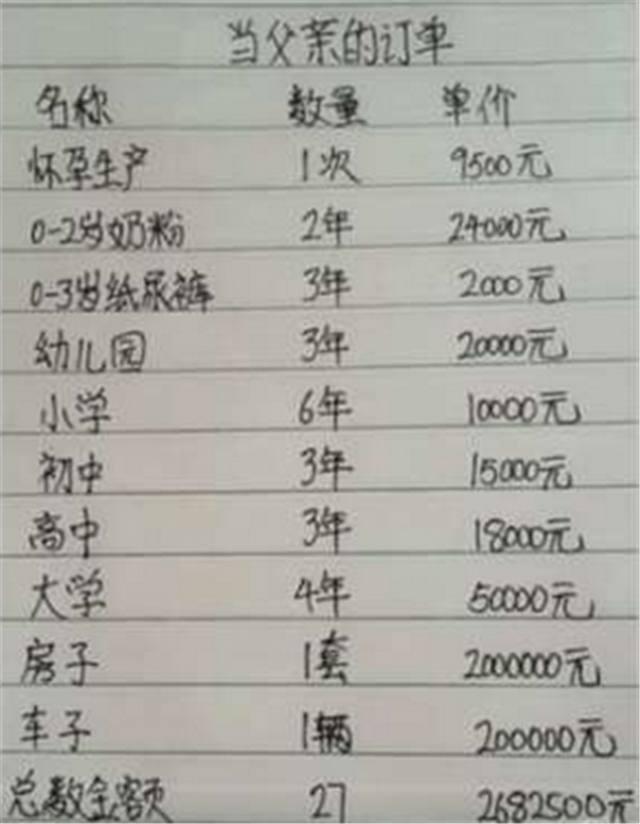 当父亲的订单
名称 数量 单价
怀孕生产 1次 9500元
0-2岁奶粉 2年 24000元
0-3岁纸尿裤 3年 2000元
幼儿园 3年 20000元
小学 6年 10000元
初中 3年 15000元
高中 3年 18000元
大学 4年 50000元
房子 1套 2000000元
车子 1辆 200000元
总数金额 27 2682500元